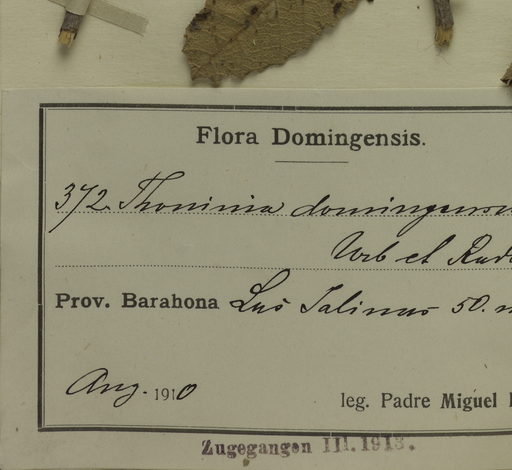 Flora Domingensis.
372. Thouinia domingensis
Urb et Radl
Prov. Barahona Las Salinas 50. m
Aug. 1910
leg. Padre Miguel
Zugegangen III. 1913.